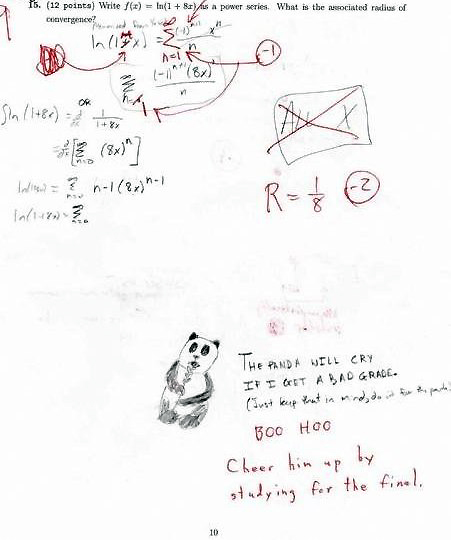 15. (12 points) Write f(x) = ln(1 + 8x) as a power series. What is the associated radius of
convergence?
ln(1+x) = ∞ Σ n=1 (-1)^{n+1} x^n / n
-1
∞ Σ n=1 (-1)^{n+1} (8x)^n / n
OR
ln(1+8x) = 1/(1+8x)
[∞ Σ n=0 (8x)^n]
∞ Σ n-1 (8x)^{n-1}
ln(1+8x) = ∞ Σ n=0
All X
R = 1/8
-2
THE PANDA WILL CRY
IF I GET A BAD GRADE.
(Just keep that in mind, do it for the panda)
BOO HOO
Cheer him up by
studying for the final.
10